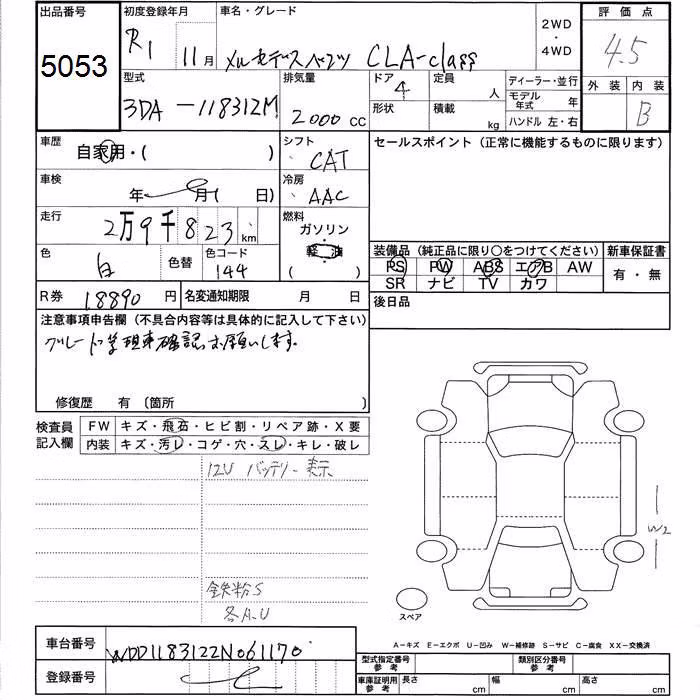 出品番号 初度登録年月 車名・グレード 2WD ・ 4WD 評価点
5053 R1 11月 メルセデスベンツ CLA-class 4.5
型式 排気量 ドア 定員 人 ディーラー・並行 外装 内装
3DA-118312M 2000 cc 4 形状 積載 kg モデル年式 年 B
ハンドル 左・右
車歴 自家用・( ) シフト CAT セールスポイント (正常に機能するものに限ります)
車検 年 月( 日) 冷房 AAC
走行 2万9千823km 燃料 ガソリン
軽油
( )
色 白 色替 色コード 144
装備品 (純正品に限り○をつけてください) 新車保証書
PS PW ABS エアB AW 有・無
SR ナビ TV カワ
R券 18890 円 名変通知期限 月 日 後日品
注意事項申告欄 (不具合内容等は具体的に記入して下さい)
グレード等現車確認お願いします。
修復歴 有 〔箇所 〕
検査員 FW キズ・飛石・ヒビ割・リペア跡・X要
記入欄 内装 キズ・汚レ・コゲ・穴・スレ・キレ・破レ
12V バッテリー表示
W2
鉄粉S
各A.U
スペア
A-キズ E-エクボ U-凹み W-補修跡 S-サビ C-腐食 XX-交換済
車台番号 WDD1183122N061170
型式指定番号 参考 類別区分番号 参考
登録番号
車庫証明用 参考 長さ cm 幅 cm 高さ cm